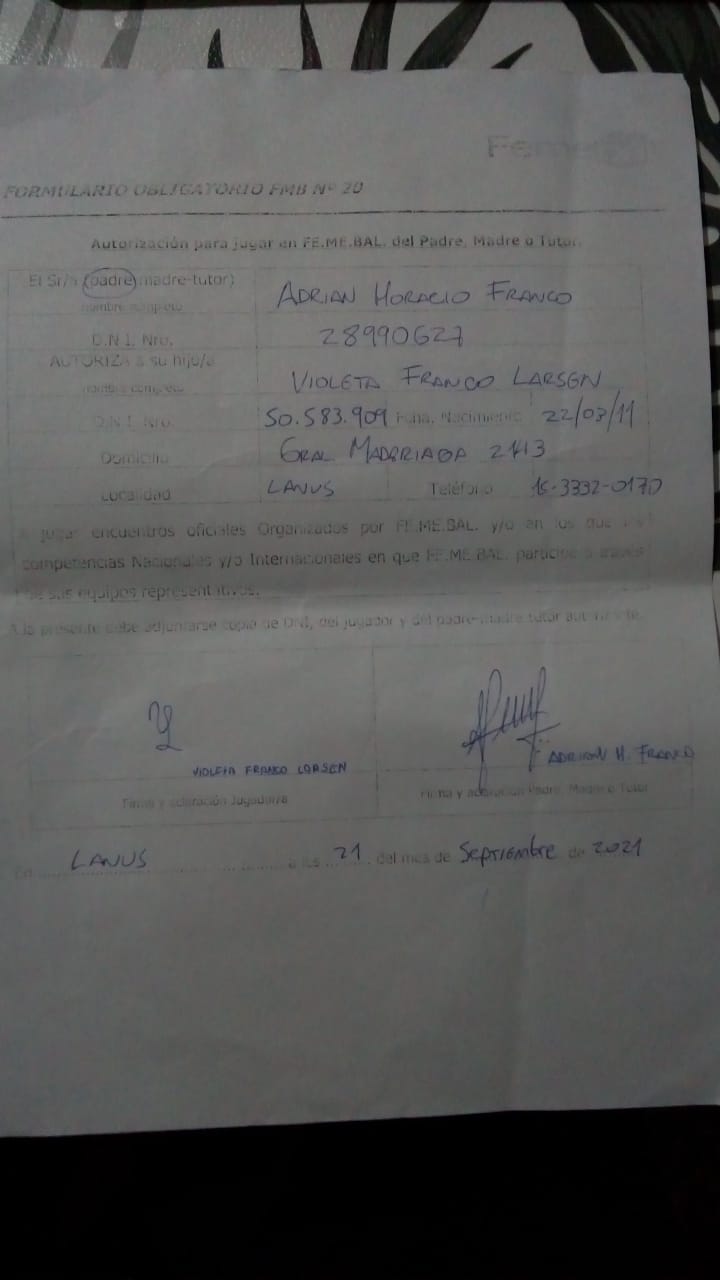 FORMULARIO OBLIGATORIO FMB Nº 20
Autorización para jugar en FE.ME.BAL. del Padre, Madre o Tutor.
El Sr/a (padre-madre-tutor) ADRIAN HORACIO FRANCO
nombre completo
D.N.I. Nro. 28990627
AUTORIZA a su hijo/a VIOLETA FRANCO LARSEN
nombre completo
D.N.I. Nro. 50.583.909 Fcha. Nacimiento 22/03/11
Domicilio GRAL MADARIAGA 2413
Localidad LANUS Teléfono 15-3332-0170
A jugar encuentros oficiales Organizados por FE.ME.BAL. y/o en los que las
competencias Nacionales y/o Internacionales en que FE.ME.BAL. participe a través
de sus equipos representativos.
A la presente debe adjuntarse copia de DNI, del jugador y del padre-madre tutor
VIOLETA FRANCO LARSEN ADRIAN H. FRANCO
Firma y aclaración Firma y aclaración Padre, Madre o Tutor
En LANUS a los 21 del mes de SEPTIEMBRE de 2021